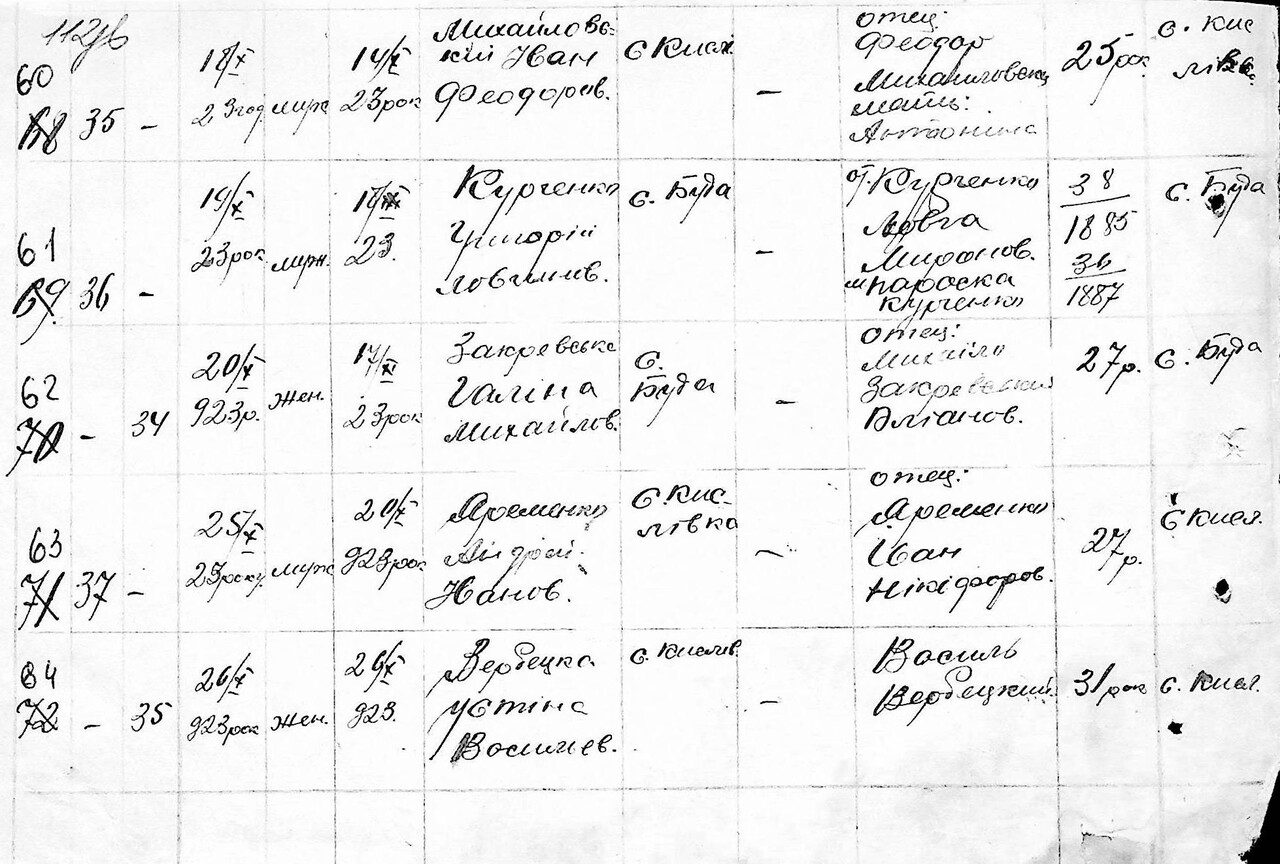 112
60
68 35 -
18/X
23год
муж
14/X
23рок
Михайловсь-
кій Іван
Феодоров.
с Кисл
-
отец:
Феодор
Михайловськ
мать:
Антоніна
25рок
с. Кис
лівка.
61
69. 36 -
19/X
23рок
муж.
23.
Курченко
Григорій
Ловгинов.
с. Буда
-
от. Курченко
Ловга
Миронов.
м Параска
Курченко
38
1885
36
1887
с. Буда
62
70 - 34
20/X
923р.
жен.
17/X
23рок
Закревська
Галіна
Михайлов.
с.
Буда
-
отец:
Михайло
Закревський
27р.
с. Буда
63
71 37 -
25/X
23року
муж
20/X
923рок
Яременко
Андрій.
Иванов.
с. Кис-
лівка
-
отец:
Яременко
Іван
Нікіфоров.
27
р.
с Кисл.
84
72 - 35
26/X
923рок
жен.
26/X
923.
Вербецка
Устіна
Васильев.
с. Кислів
-
Василь
Вербецкий
31рок
с. Кисл.